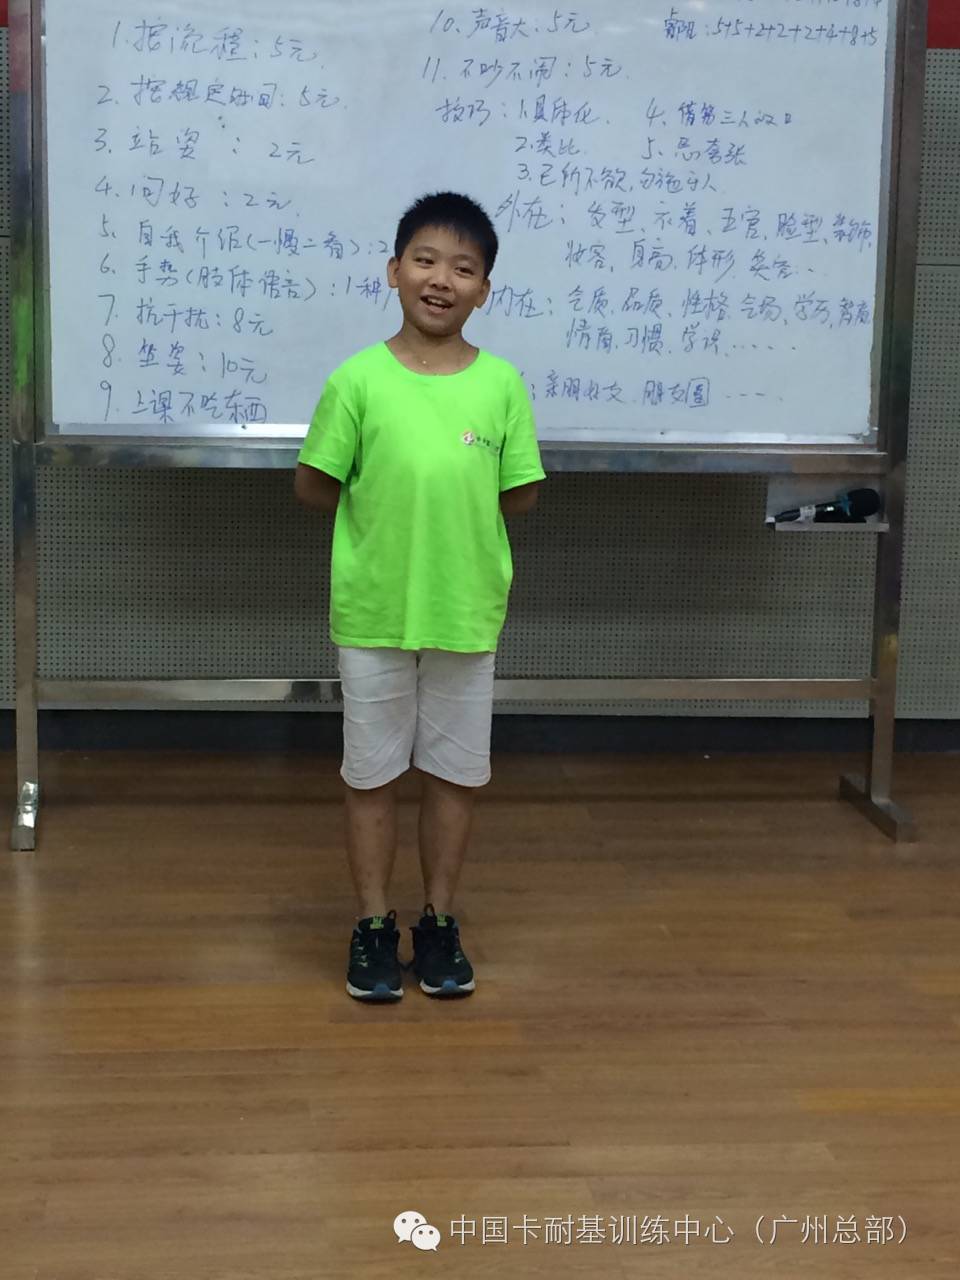 1. 按流程：5元
2. 按规定时间：5元.
3. 站姿 ： 2元
4. 问好 ：2元.
5. 自我介绍(一慢二看)：2
6. 手势(肢体语言)：1种
7. 抗干扰：8元
8. 坐姿：10元
9. 上课不吃东西
10. 声音大：5元.
：5+5+2+2+2+4+8+5
11. 不吵不闹：5元.
技巧：1.具体化. 4. 借第三人的口
2.类比. 5.
3.己所不欲,勿施于人
外在：发型、衣着、五官、脸型、
妆容、身高、体形、
内在：气质、品质、性格、气场、学历、
情商、习惯、学识......
：亲朋好友、朋友圈 ----
中国卡耐基训练中心（广州总部）